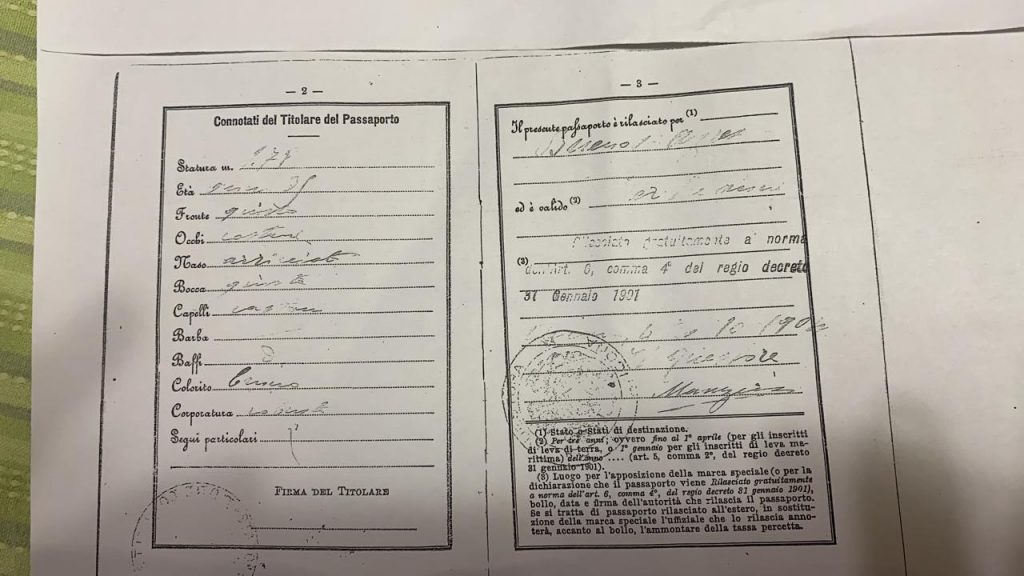 — 2 —
Connotati del Titolare del Passaporto
Statura m. 1.77
Età anni
Fronte giusta
Occhi castani
Naso arricciato
Bocca giusta
Capelli castani
Barba
Baffi
Colorito bruno
Corporatura robusta
Segni particolari
FIRMA DEL TITOLARE
— 3 —
Il presente passaporto è rilasciato per (1)
Buenos Aires
ed è valido (2)
anni
Rilasciato gratuitamente a norma
(3) dell'Art. 6, comma 4° del regio decreto
31 Gennaio 1901
10
(1) Stato o Stati di destinazione.
(2) Per tre anni; ovvero fino al 1° aprile (per gli inscritti
di leva di terra, o 1° gennaio per gli inscritti di leva ma-
rittima) dell'anno .... (art. 5, comma 2°, del regio decreto
31 gennaio 1901).
(3) Luogo per l'apposizione della marca speciale (o per la
dichiarazione che il passaporto viene Rilasciato gratuitamente
a norma dell'art. 6, comma 4°, del regio decreto 31 gennaio 1901),
bollo, data e firma dell'autorità che rilascia il passaporto.
Se si tratta di passaporto rilasciato all'estero, in sostitu-
zione della marca speciale l'uffiziale che lo rilascia anno-
terà, accanto al bollo, l'ammontare della tassa percetta.